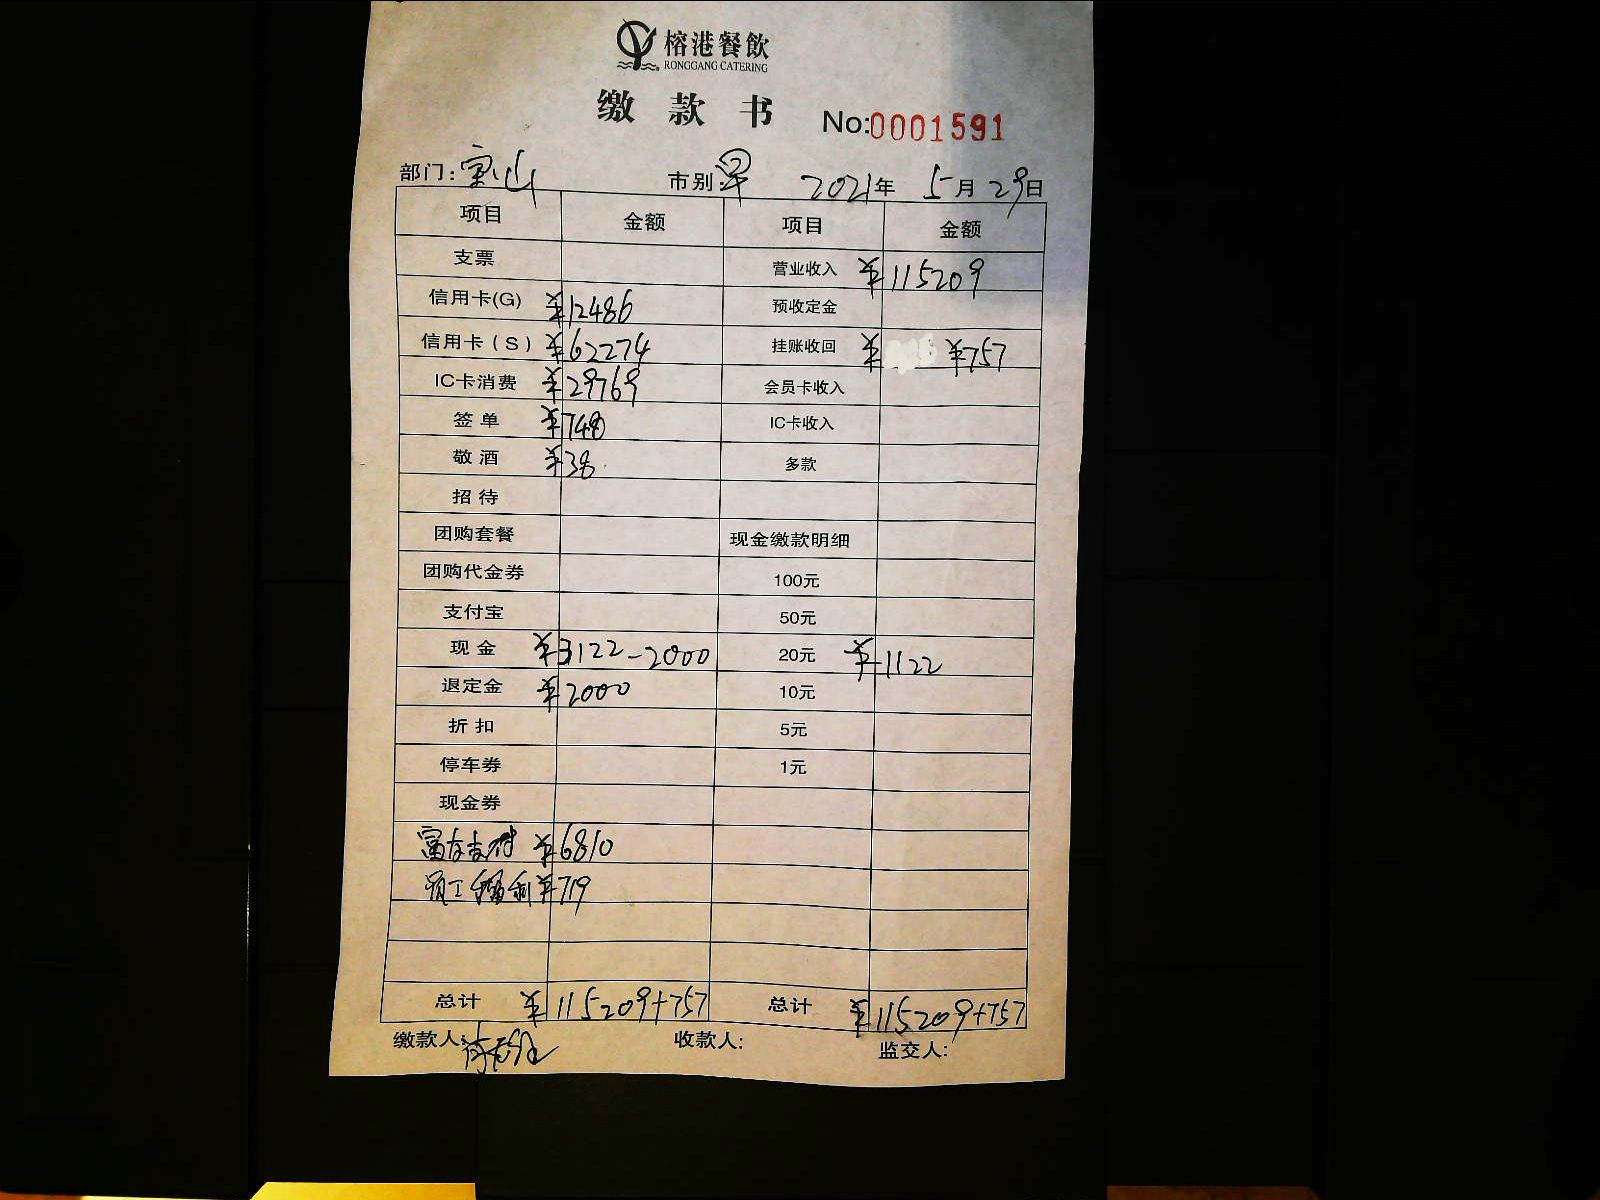 榕港餐飲
RONGGANG CATERING
缴 款 书 No:0001591
部门: 宝山 市别: 早 2021年 5月29日
项目 金额 项目 金额
支票 营业收入 ¥115209
信用卡(G) ¥12486 预收定金
信用卡(S) ¥62274 挂账收回 ¥ ¥757
IC卡消费 ¥29769 会员卡收入
签单 ¥748 IC卡收入
敬酒 ¥38 多款
招待
团购套餐 现金缴款明细
团购代金券 100元
支付宝 50元
现金 ¥3122-2000 20元 ¥1122
退定金 ¥2000 10元
折扣 5元
停车券 1元
现金券
富友支付 ¥6810
员工福利 ¥719
总计 ¥115209+757 总计 ¥115209+757
缴款人: 收款人: 监交人: